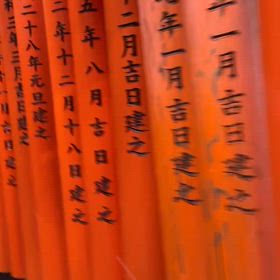 年一月吉日建之
年一月吉日建之
十二月吉日建之
五年八月吉日建之
二年十二月十八日建之
二十八年元旦建之
三年三月吉日建之